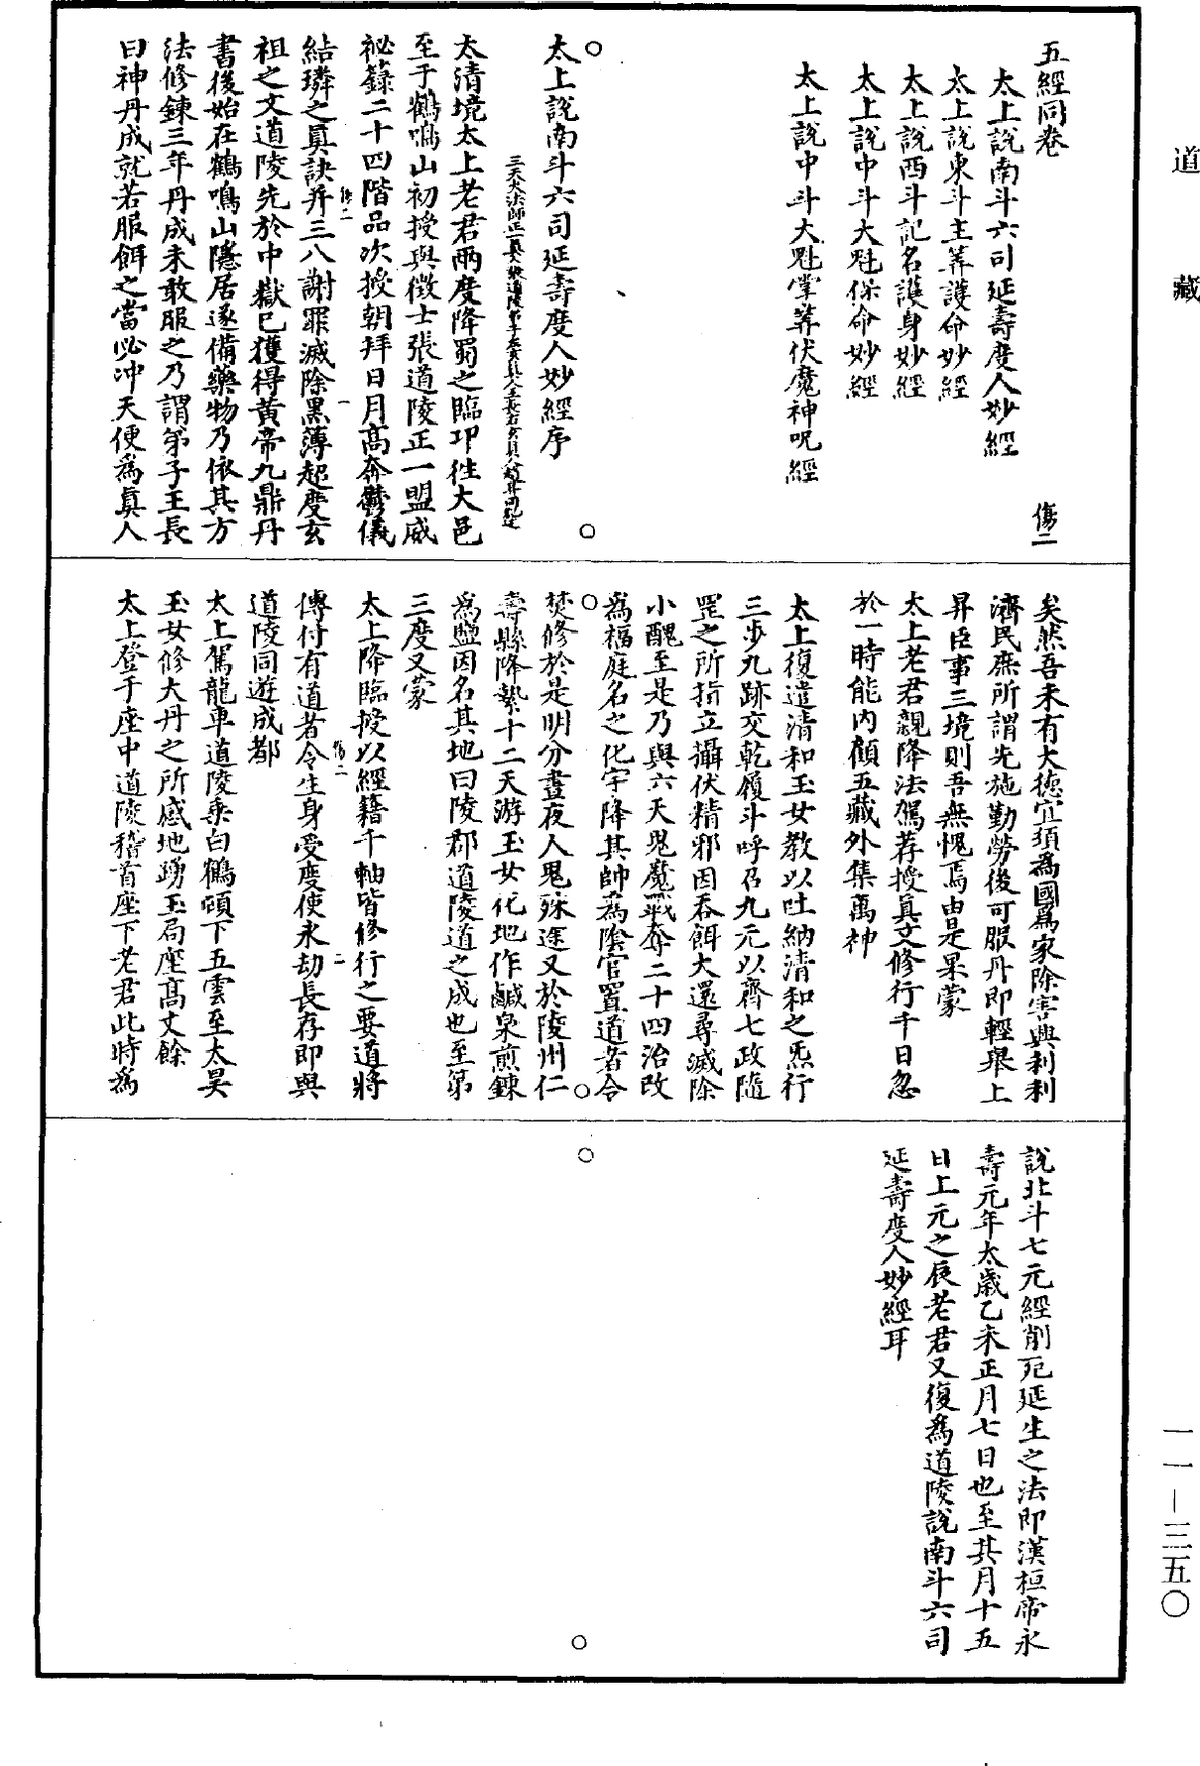 道藏
五經同卷 傷二
太上說南斗六司延壽度人妙經
太上說東斗主筭護命妙經
太上說西斗記名護身妙經
太上說中斗大魁保命妙經
太上說中斗大魁掌筭伏魔神呪經
太上說南斗六司延壽度人妙經序
太清境太上老君兩度降蜀之臨邛徃大邑
至于鶴鳴山初授與徵士張道陵正一盟威
祕籙二十四階品次授朝拜日月高奔鬱儀
傷二 一
結璘之眞訣并三八謝罪滅除黑薄超度玄
祖之文道陵先於中嶽已獲得黄帝九鼎丹
書後始在鶴鳴山隱居遂備藥物乃依其方
法修鍊三年丹成未敢服之乃謂弟子王長
曰神丹成就若服餌之當必沖天便爲眞人
矣然吾未有大德宜須為國爲家除害興利利
濟民庶所謂先施勤勞後可服丹即輕舉上
昇臣事三境則吾無愧焉由是果蒙
太上老君親降法駕荐授眞文修行千日忽
於一時能內顧五藏外集萬神
太上復遣清和玉女教以吐納清和之炁行
三步九跡交乾履斗呼召九元以齊七政隨
罡之所指立攝伏精邪因吞餌大還尋滅除
小醜至是乃與六天鬼魔戰奪二十四治改
為福庭名之化宇降其帥為陰官置道者令
焚修於是明分晝夜人鬼殊途又於陵州仁
壽縣降縶十二天游玉女化地作鹹泉煎鍊
爲鹽因名其地曰陵郡道陵道之成也至第
三度又蒙
太上降臨授以經籍千軸皆修行之要道將
傷二 二
傳付有道者令生身受度使永劫長存即與
道陵同遊成都
太上駕龍車道陵乘白鶴頓下五雲至太昊
玉女修大丹之所感地踴玉局座高丈餘
太上登于座中道陵稽首座下老君此時爲
說北斗七元經削死延生之法即漢桓帝永
壽元年太歲乙未正月七日也至其月十五
日上元之辰老君又復爲道陵說南斗六司
延壽度人妙經耳
一一－三五〇